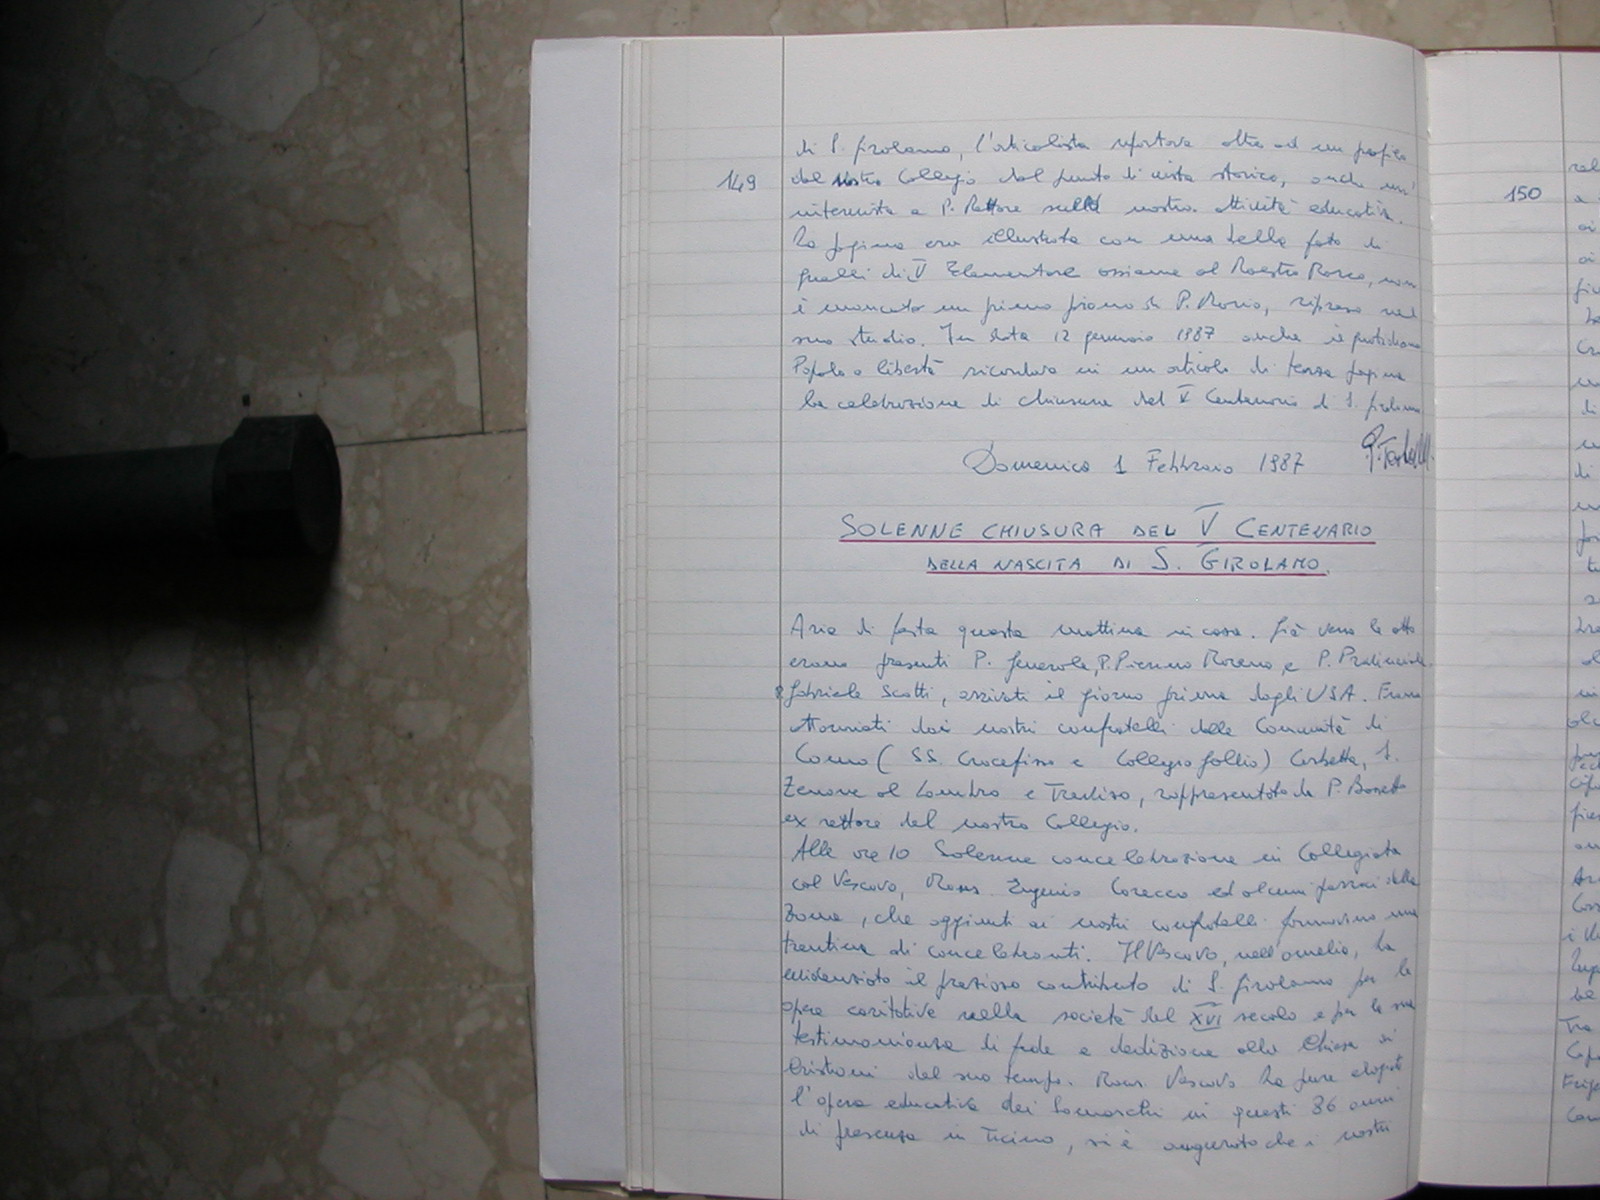 149
di S. Girolamo, l'articolista riportava oltre ad un profilo
del nostro Collegio dal punto di vista storico, anche un'
intervista a P. Rettore sulla nostra attività educativa.
La pagina era illustrata con una bella foto di
quelli di V Elementare assieme al Maestro, non
è mancato un primo piano di P. Mario, ripreso nel
suo studio. In data 12 gennaio 1987 anche il quotidiano
Popolo e libertà ricordava in un articolo di terza pagina
la celebrazione di chiusura del V Centenario di S. Girolamo
Domenica 1 Febbraio 1987
SOLENNE CHIUSURA DEL V CENTENARIO
DELLA NASCITA DI S. GIROLAMO.
Aria di festa questa mattina in casa. Già verso le otto
erano presenti P. Generale, P. Pierino Moreno, e P. Provinciale
P. Gabriele Scotti, arrivati il giorno prima dagli USA. Erano
attorniati dai nostri confratelli delle Comunità di
Como (SS. Crocefisso e Collegio Gallio) Corbetta, S.
Zenone al Lambro e Treviso, rappresentato da P. Bossetto
ex rettore del nostro Collegio.
Alle ore 10 Solenne concelebrazione in Collegiata
col Vescovo, Mons. Eugenio Corecco ed alcuni parroci della
zona, che aggiunti ai nostri confratelli formavano una
trentina di concelebranti. Il Vescovo, nell'omelia, ha
evidenziato il prezioso contributo di S. Girolamo per le
opere caritative nella società del XVI secolo e per la sua
testimonianza di fede e dedizione alla Chiesa
Cristiani del suo tempo. Mons. Vescovo ha pure elogiato
l'opera educativa dei Somaschi in questi 86 anni
di presenza in Ticino, si è augurato che i nostri
150